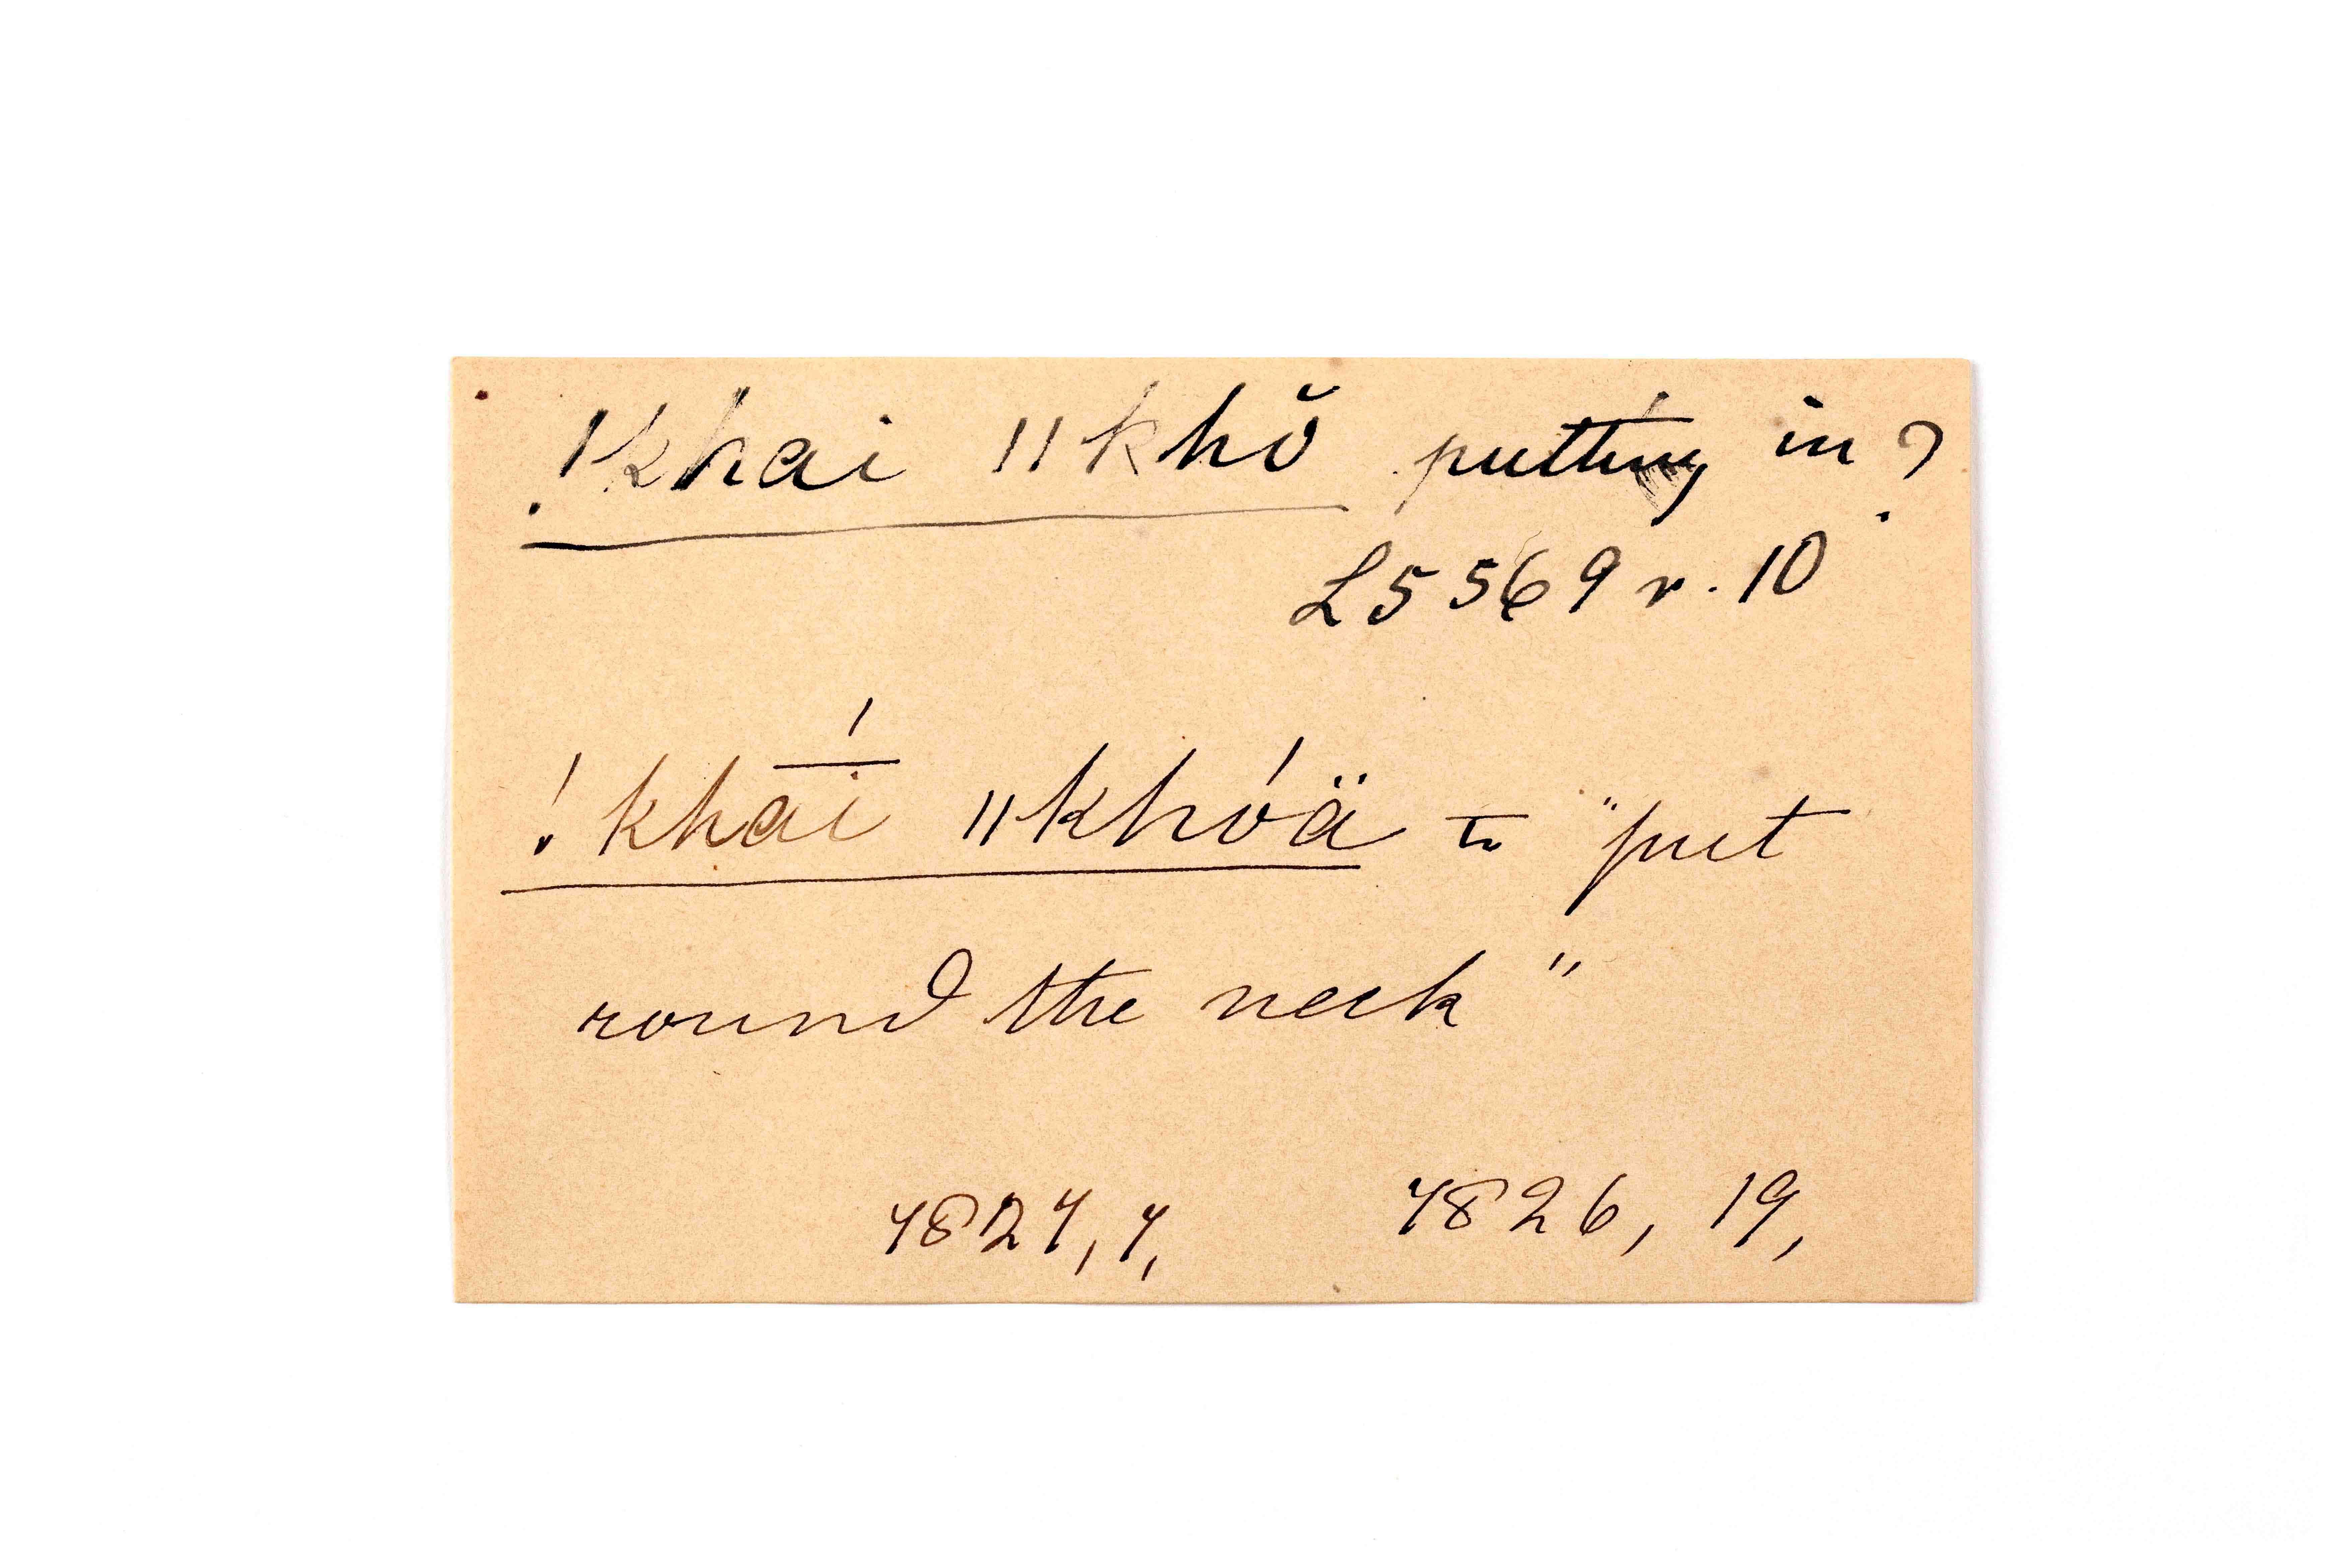 !khai ǁkhŏ putting in?
L5569 r. 10
!kha͞í ǁkhóä to "put
round the neck"
4826, 19,
4827, 7,